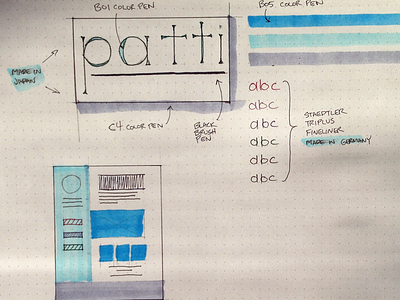 B01 COLOR PEN
B05 COLOR PEN
patti
MADE IN
JAPAN
C4 COLOR PEN
BLACK
BRUSH
PEN
abc
abc
abc
abc
abc
abc
STAEDTLER
TRIPLUS
FINELINER
MADE IN GERMANY